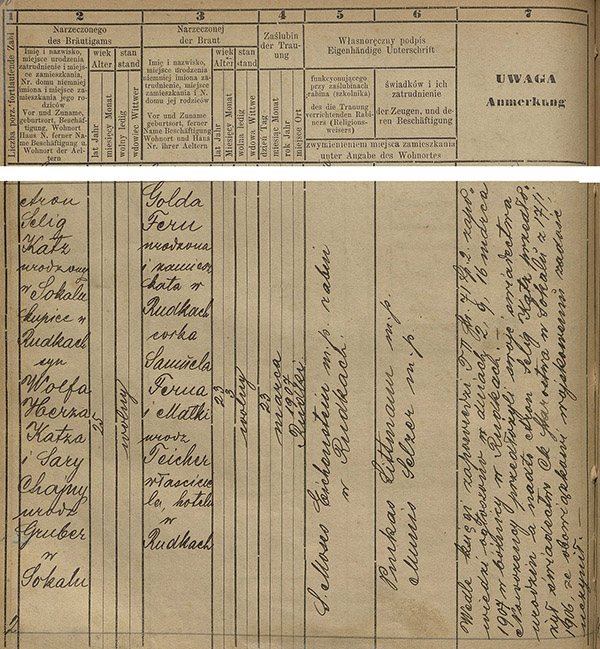 1
2
3
4
5
6
7
Liczba porz./fortlaufende Zahl
Narzeczonego
des Bräutigams
Imię i nazwisko,
miejsce urodzenia
zatrudnienie i miejs-
ce zamieszkania,
Nr. domu niemniej
imiona i miejsce za-
mieszkania jego ro-
dziców
Vor und Zuname,
geburtsort, Beschäf-
tigung, Wohnort
Haus N. ferner Na-
me Beschäftigung u.
Wohnort der Ael-
tern
wiek
Alter
lat Jahr
Miesięcy Monat
stan
stand
wolny ledig
wdowiec Wittwer
Narzeczonej
der Braut
Imię i nazwisko,
miejsce urodzenia
niemniej imiona, za-
trudnienie, miejsce
zamieszkania i N.
domu jej rodziców
Vor und Zuname
geburtsort, ferner
Name Beschäftigung
Wohnort und Haus
Nr. ihrer Aeltern
wiek
Alter
lat Jahr
Miesięcy Monat
stan
stand
wolna ledig
wdowa Wittwe
Zaślubin
der Trau-
ung
dzień Tag
miesiąc Monat
rok Jahr
miejsce Ort
Własnoręczny podpis
Eigenhändige Unterschrift
funkcyonującego
przy zaślubinach
rabina (szkolnika)
des die Trauung
verrichtenden Rabi-
ners (Religions-
weisers)
świadków i ich
zatrudnienie
der Zeugen, und de-
ren Beschäftigung
zwymienieniem miejsca zamieszkania
unter Angabe des Wohnortes
UWAGA
Anmerkung
Aron
Selig
Katz
urodzony
w Sokalu
kupiec w
Rudkach
syn
Wolfa
Herza
Katza
i Sary
Chajny
urodz
Gruber
w
Sokalu
25
wolny
Golda
Fern
urodzona
i zamiesz
kała w
Rudkach
corka
Samuela
Ferna
i Matki
urodz
Teicher
właścicie
lei hotelu
w
Rudkach
23
3
wolny
23
marca
1907
Rudki
S. Moses Eichenstein m/p rabin
w Rudkach
Pinkas Littmann m.p.
Munis Selzer m/p.
Wedle księgi zapowiedzi zapo-
wiedzi ogłoszono w dniach 2, 9, 16 marca
1907 w bóżnicy w Rudkach. —
Narzeczeni przedłożyli swoje świadectwa
urodzin a nadto Aron Selig Katz przedło-
żył świadectwo Ck Starostwa w Sokalu z 17/11
1906 że obowiązkowi wojskowemu zadość
uczynił —
2